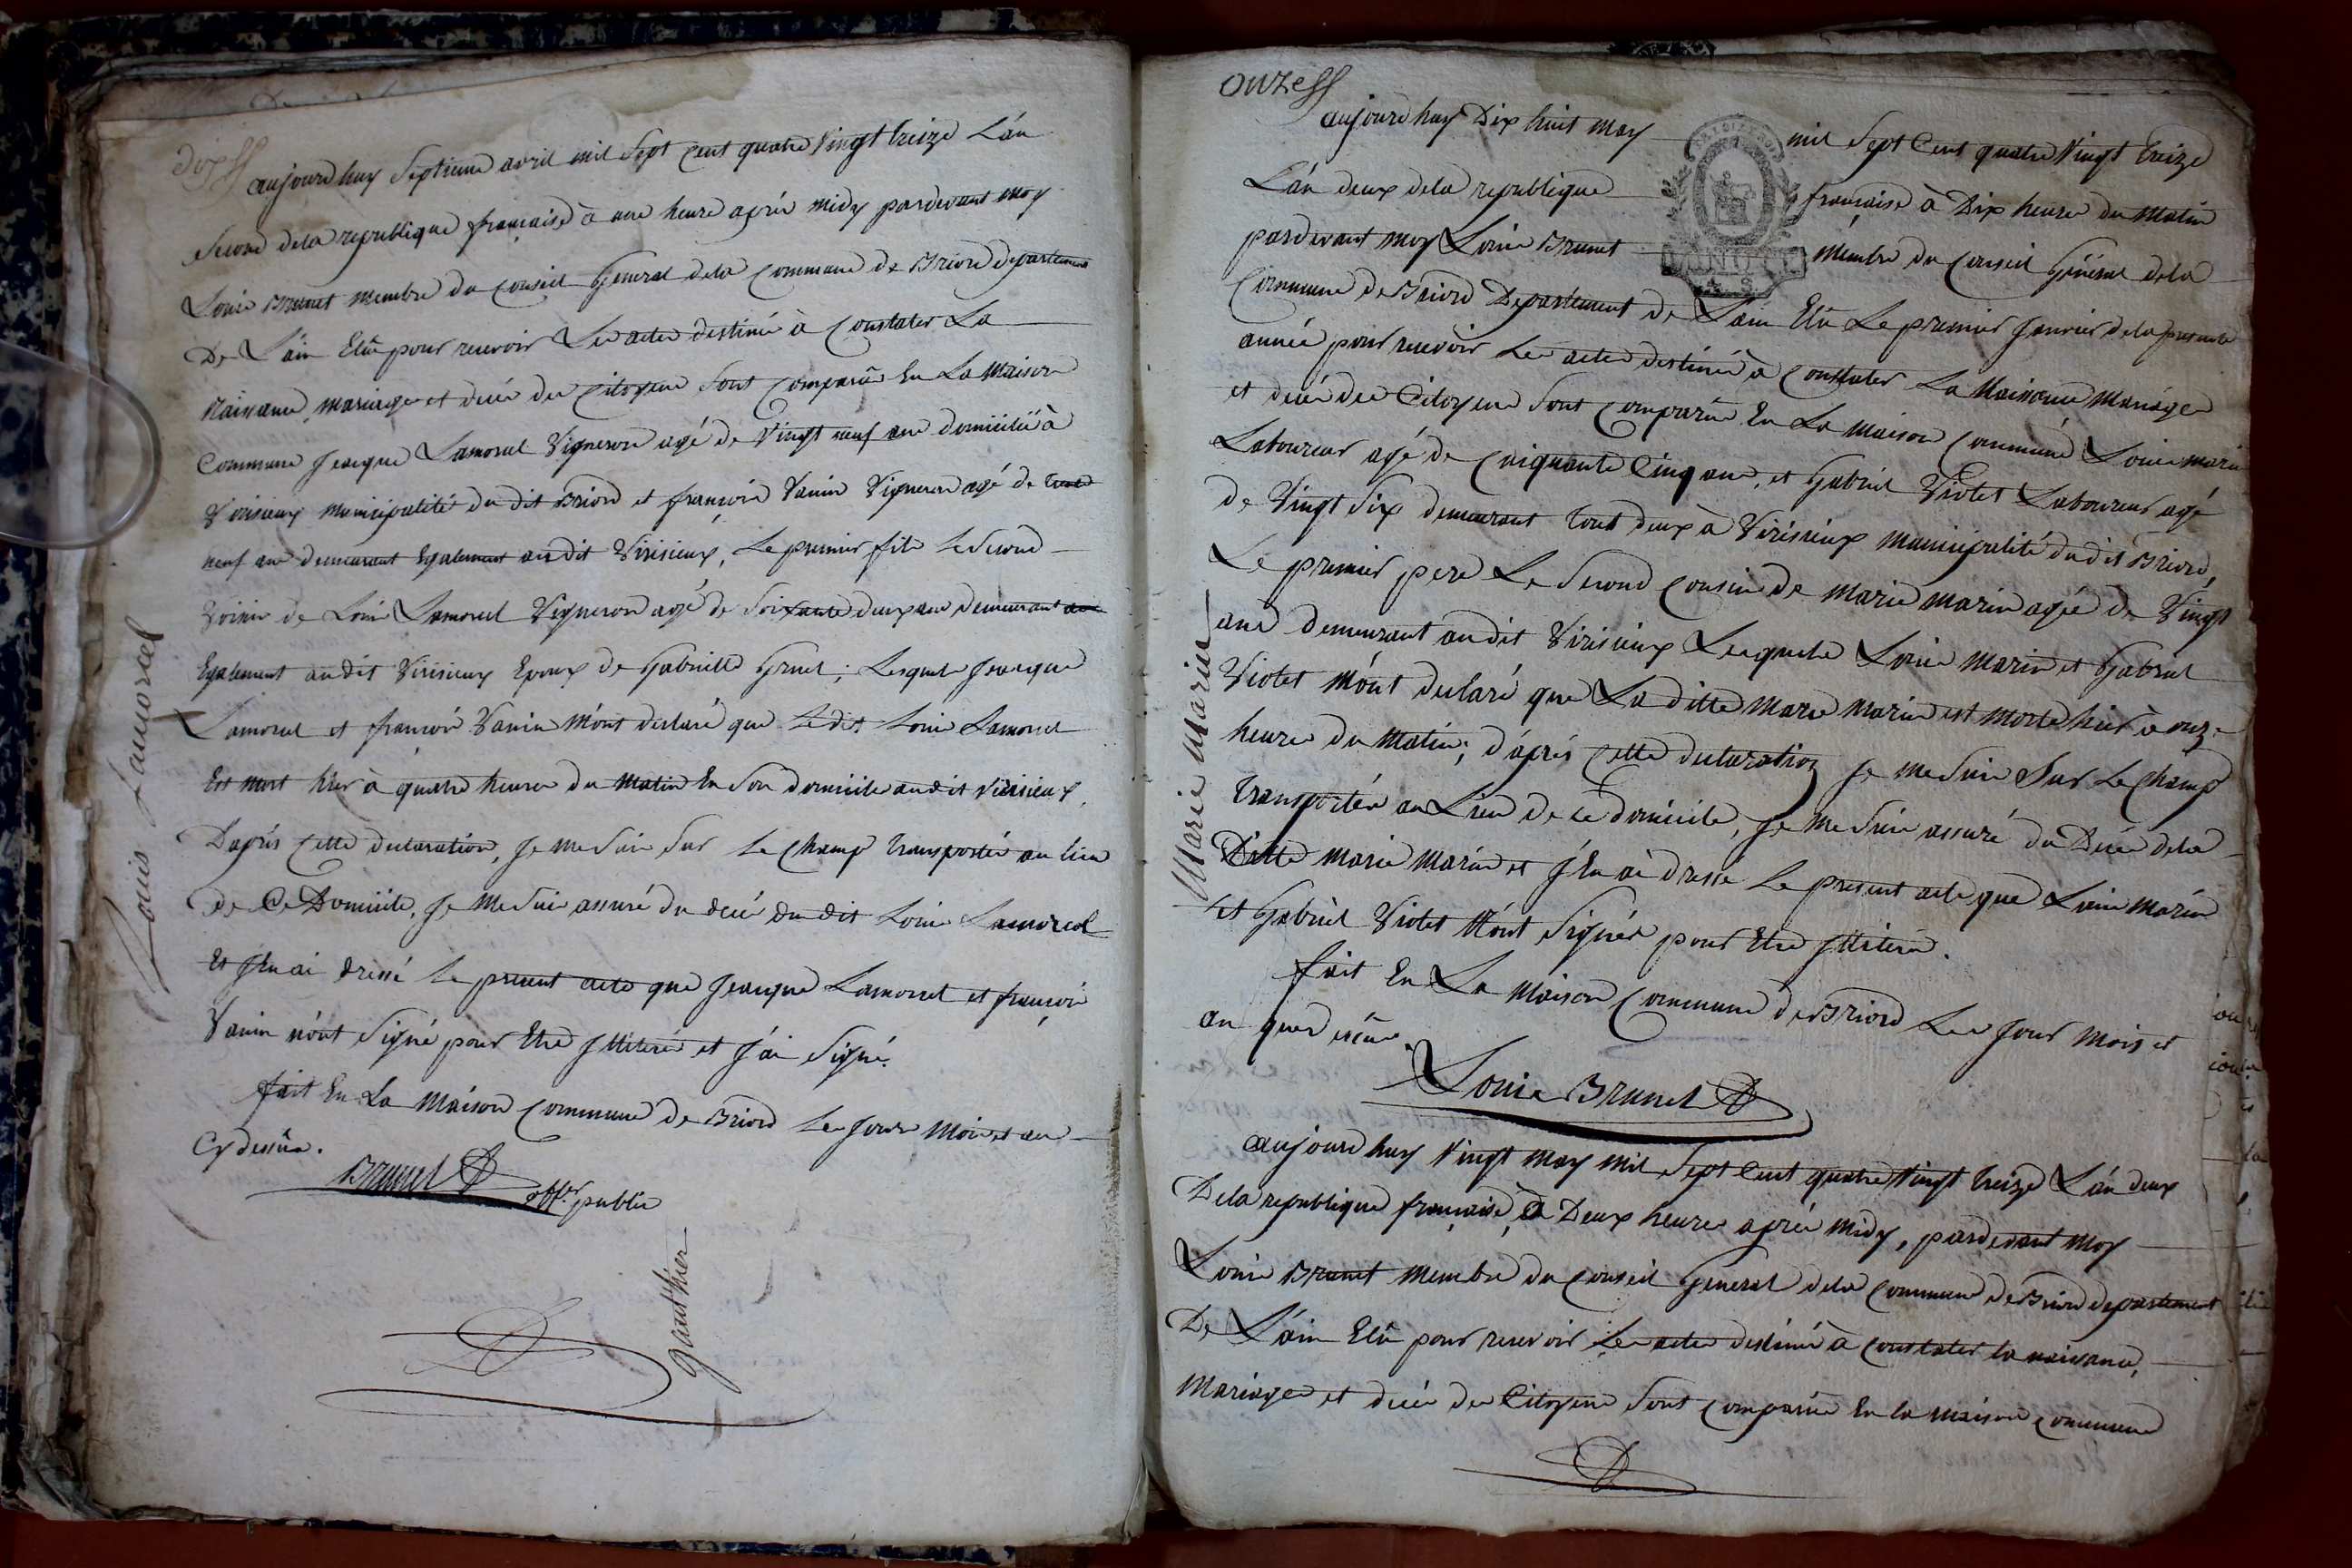 dix ff
aujourd huy Septieme avril mil Sept Cent quatre Vingt treize L'án
Second dela republique française à une heure aprés midy pardevant moy
Louis Brunet membre du Conseil General dela Commune de Briord departement
De L'áin Elû pour recevoir Les actes destinés à Constater La
Naissance mariages et decés des Citoyens Sont Comparûs En La Maison
Commune Jeacque Lamorel Vigneron agé de Vingt neuf ans domicilié à
Virisieux municipalité du dit Briord et françois Vanin Vigneron agé de
neuf ans demeurant Egalement au dit Virisieux, Le premier fils Le Second
Voisin de Louis Lamorel Vigneron agé de Soixante deux ans demeurant
Egalement au dit Virisieux Epoux de Gabrielle ; Lesquels Jeacque
Lamorel et françois Vanin m'ont declaré que Le dit Louis Lamorel
Est mort hier à quatre heures du matin En Son domicile audit Virisieux,
Daprés Cette declaration, Je me Suis Sur Le Champ transporté au lieu
de Ce Domicile, Je me Suis assuré du decés du dit Louis Lamorel
Et J'En ai dressé Le present acte que Jeacque Lamorel et françois
Vanin n'ónt Signé pour Etre Jlliterés et J'ái Signé.
fait En La Maison Commune de Briord Les Jour Mois et an
Cy dessûs.
Brunet offer public
gauthier
Louis Lamorel
onze ff
aujourd huy Dix huit may mil Sept Cent quatre Vingt treize
L'án deux dela republique française à Dix heures du Matin
pardevant moy Louis Brunet membre du Conseil Général dela
Commune de Briord Departement de L'ain Elû Le premier Janvier dela presente
année pour recevoir Les actes destinés à Constater La Naissance Mariages
et decés des Citoyens Sont Comparûs En La Maison Commune Louis marin
Laboureur agé de Cinquante Cinq ans, et Gabriel Violet Laboureur agé
de Vingt Six demeurant tous deux à Virisieux municipalité du dit Briord,
Le premier pere Le Second Cousin de Marie marin agée de Vingt
ans demeurant au dit Virisieux Lesquels Louis Marin et Gabriel
Violet m'ónt declaré que La ditte Marie Marin est morte hier à onze
heures du Matin; d'áprés Cette declaration Je me Suis Sur Le Champ
transportér au Lieu de ce domicile, Je me Suis assuré du Decés dela
Ditte Marie Marin et J'En ai dressé Le present acte que Louis Marin
et Gabriel Violet N'ónt Signér pour Etre Jlliterés.
fait En La Maison Commune de Briord Les Jour Mois et
an que dessûs.
Louis Brunet
Marie Marin
aujourd huy Vingt may mil Sept Cent quatre Vingt treize L'án deux
Dela republique française, à Deux heures aprés midy, pardevant moy
Louis Brunet membre du Conseil General dela Commune de Briord departement
De L'áin Elû pour recevoir Les actes destinés à Constater la naissance,
Mariages et decés des Citoyens Sont Comparûs En la maison Commune